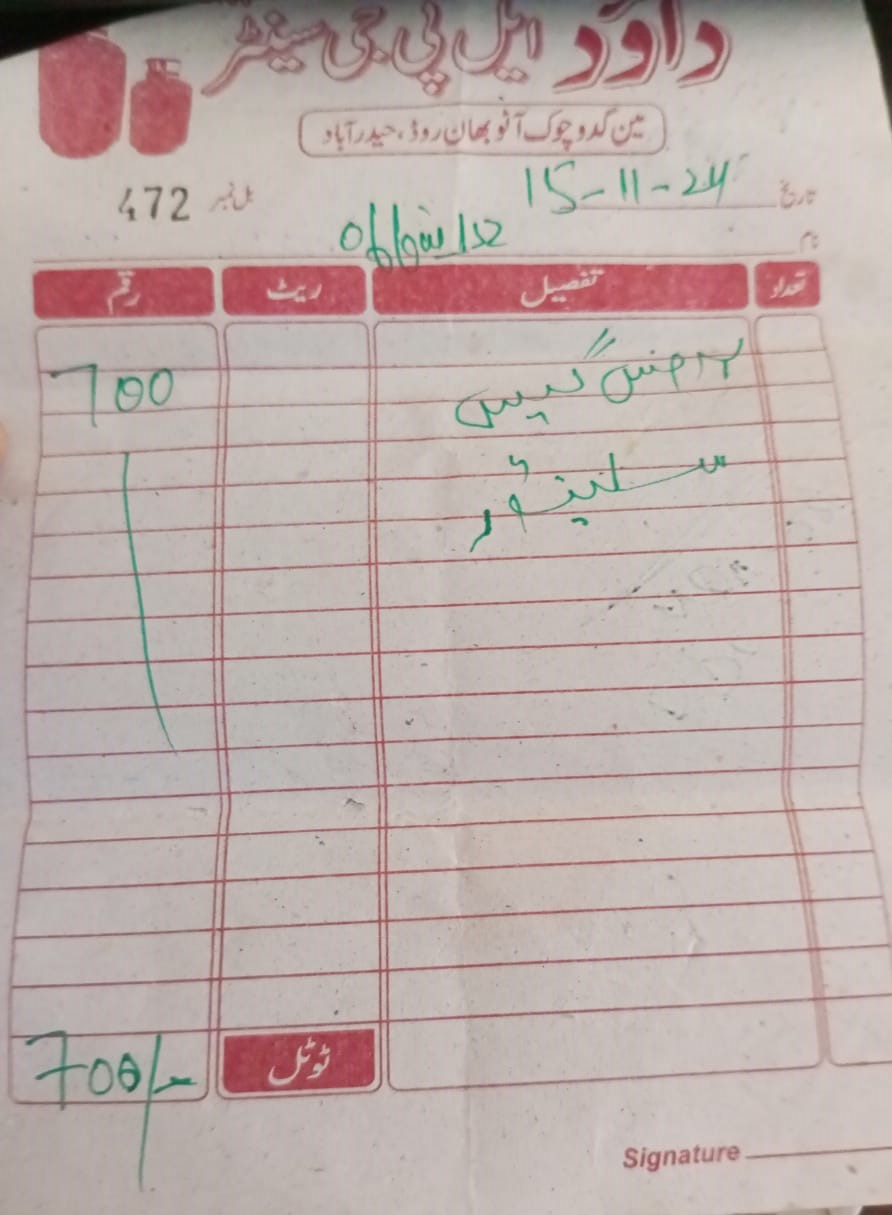 داؤد ایل پی جی سینٹر
مین گدو چوک آٹو بھان روڈ، حیدرآباد
تاریخ 15-11-24 بل نمبر 472
نام
تعداد تفصیل ریٹ رقم
گیس 700
سلینڈر
ٹوٹل 700/-
Signature